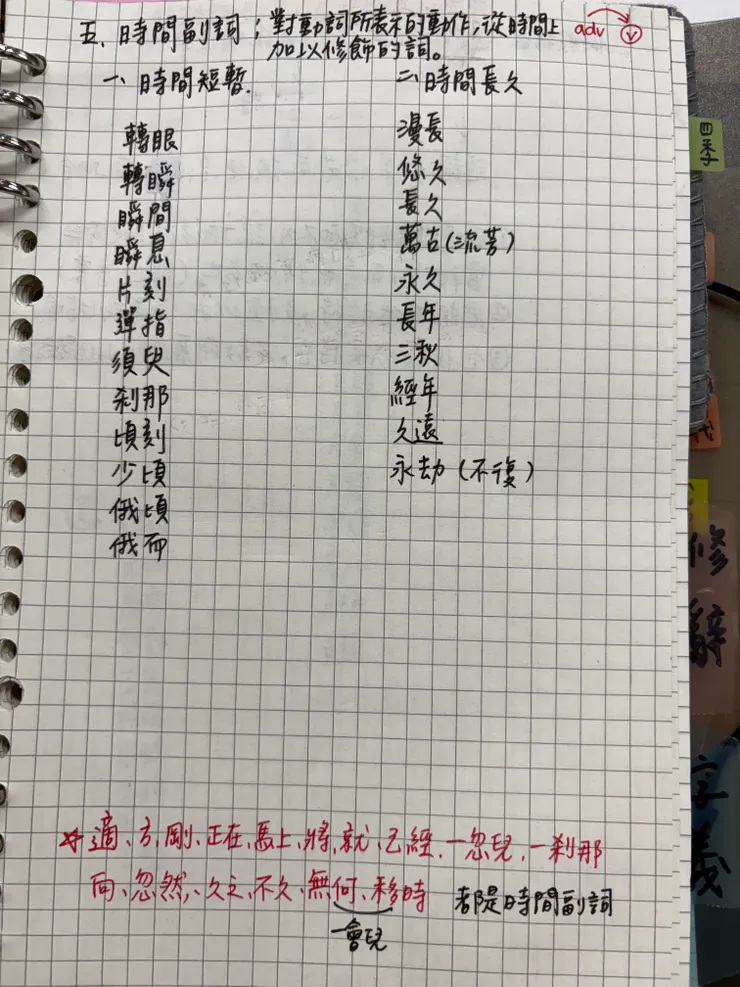 五、時間副詞：對動詞所表示的動作，從時間上
加以修飾的詞。
adv
v
一、時間短暫.
轉眼
轉瞬
瞬間
瞬息
片刻
彈指
須臾
剎那
頃刻
少頃
俄頃
俄而
二、時間長久
漫長
悠久
長久
萬古(流芳)
永久
長年
三秋
經年
久遠
永劫(不復)
適、方、剛、正在、馬上、將、就、已經、一忽兒、一剎那
向、忽然、久之、不久、無何、移時 都是時間副詞
一會兒
四季
修
辭
字
義